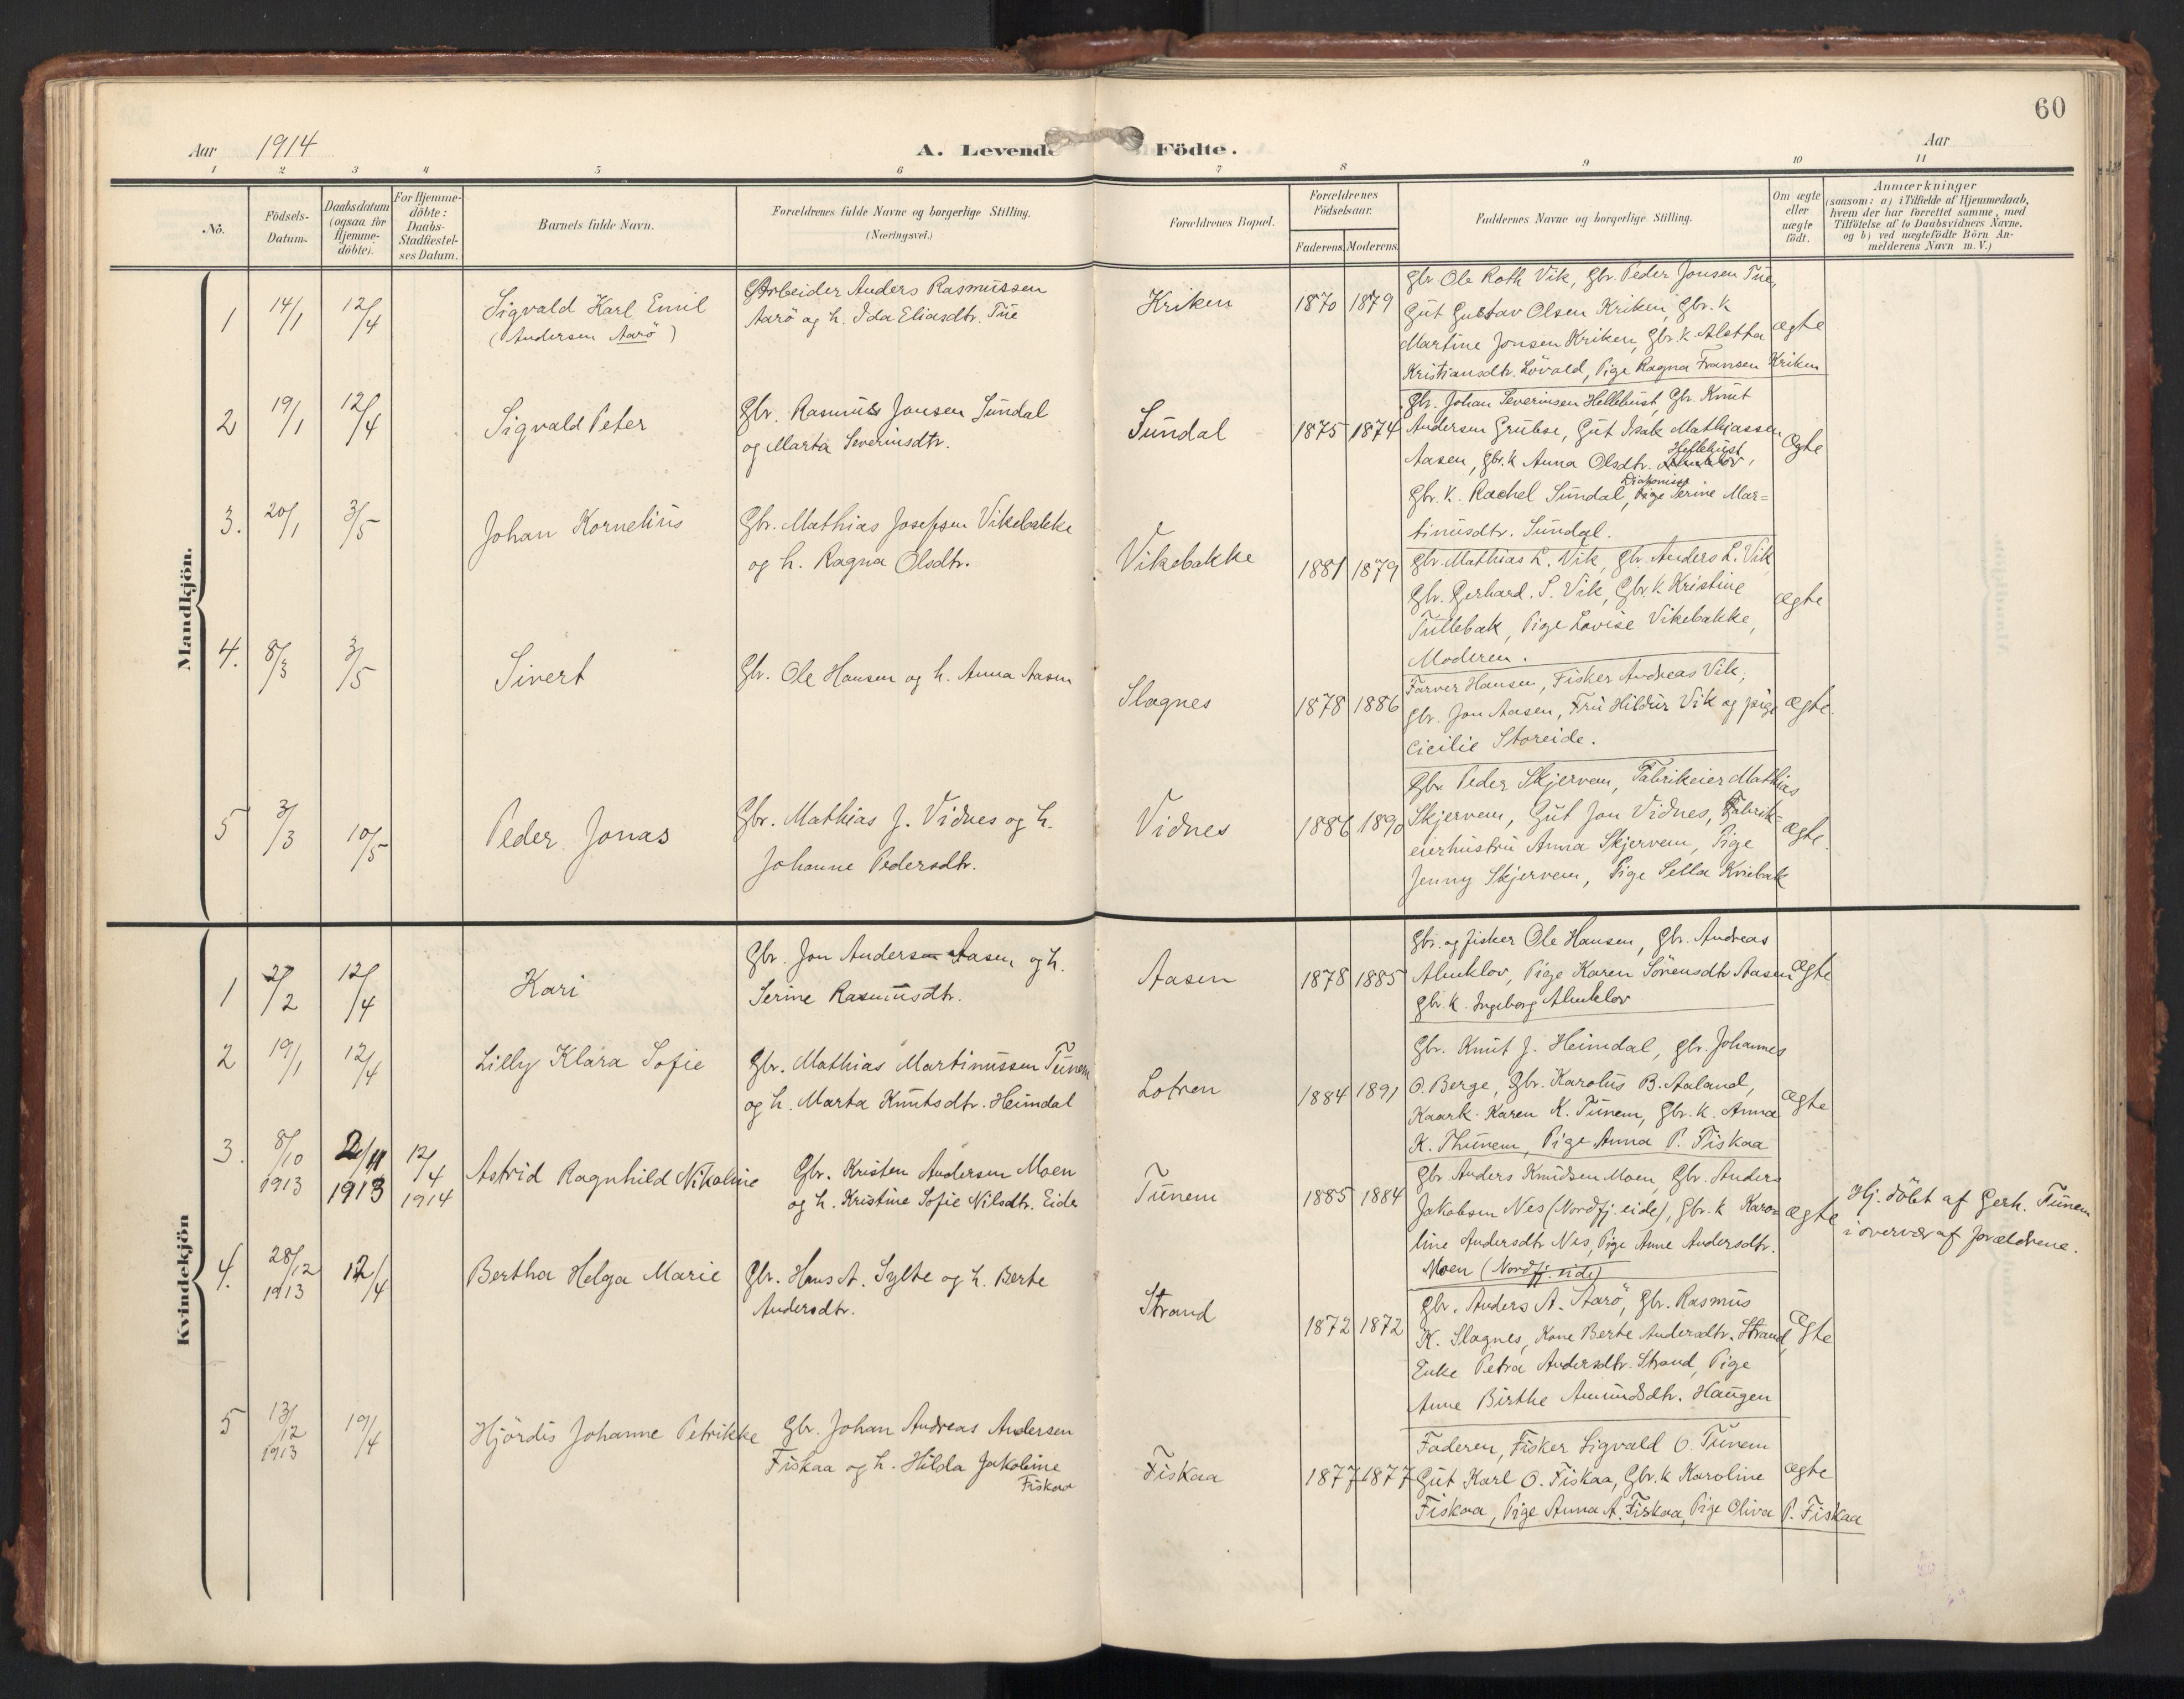 60
Aar 1914
A. Levende Födte.
Aar
1 2 3 4 5 6 7 8 9 10 11
No.
Födsels-
Datum.
Daabsdatum
(ogsaa for
Hjemme-
döbte).
For Hjemme-
döbte:
Daabs-
Stadfæstel-
ses Datum.
Barnets fulde Navn.
Forældrenes fulde Navne og borgerlige Stilling.
(Næringsvei.)
Forældrenes Bopæl.
Forældrenes
Födselsaar.
Faderens. Moderens.
Faddernes Navne og borgerlige Stilling.
Om ægte
eller
uægte
födt.
Anmærkninger
(saasom: a) i Tilfælde af Hjemmedaab,
hvem der har forrettet samme, med
Tilföielse af to Daabsvidners Navne,
og b) ved uægtefödte Börn An-
melderens Navn m. V.)
Mandkjön.
1 14/1 12/4
Sigvald Karl Emil
(Andersen Aarö)
Arbeider Anders Rasmussen
Aarö og h. Ida Eliasdtr. Tue
Kriken
1870 1879
Gbr Ole Roth Vik, Gbr. Peder Jonsen Tue,
Gut Gustav Olsen Kriken, Gbr. k
Martine Jonsen Kriken, Gbr. k. Aletha
Kristiansdtr. Lövold, Pige Ragna Fransen Kriken
ægte
2 19/1 12/4
Sigvald Peter
Gbr. Rasmus Jonsen Sundal
og Marta Severinsdtr.
Sundal
1875 1874
Gbr. Johan Severinsen Hellehust, Gbr. Knut
Andersen Grubse, Gut Isak Mathiassen
Aasen, Gbr. k Anna Olsdtr. Hellehust,
Gbr. k. Rachel Sundal, Diakonisse Serine Mar=
tinusdtr. Sundal.
Ægte
3. 20/1 3/5
Johan Kornelius
Gbr. Mathias Josefsen Vikebakke
og h. Ragna Olsdtr.
Vikebakke
1881 1879
Gbr. Mathias L. Vik, Gbr. Anders L. Vik
Gbr. Gerhard. S. Vik, Gbr. k Kristine
Tullebak, Pige Lovise Vikebakke,
Moderen.
Ægte
4. 8/3 3/5
Sivert
Gbr. Ole Hansen og h. Anna Aasen
Slagnes
1878 1886
Farver Hansen, Fisker Andreas Vik,
Gbr. Jon Aasen, Fru Hildur Vik og pige
Cicilie Storeide.
Ægte.
5 3/3 10/5
Peder Jonas
Gbr. Mathias J. Vidnes og h.
Johanne Pedersdtr.
Vidnes
1886 1890
Gbr. Peder Skjerven, Fabrikeier Mathias
Skjerven, Gut Jon Vidnes, Fabrik=
eierhustru Anna Skjerven, Pige
Jenny Skjerven, Pige Sella Kvibak
Ægte.
Kvindekjön
1 2/2 12/4
Kari
Gbr. Jon Andersen Aasen og h.
Serine Rasmusdtr.
Aasen
1878 1885
Gbr. og fisker Ole Hansen, Gbr. Andreas
Almklov, Pige Karen Sörensdtr Aasen
Gbr. k. Ingeborg Almklov
Ægte
2 19/1 12/4
Lilly Klara Sofie
Gbr. Mathias Martinussen Tunem
og h. Marta Knutsdtr. Heimdal
Lotren
1884 1891
Gbr. Knut J. Heimdal, Gbr. Johannes
O. Berge, Gbr. Karolus B. Aaland,
Kaark. Karen K. Tunem, Gbr. k. Anna
K. Thunem, Pige Anna P. Fiskaa
Ægte
3. 8/10 1913 2/11 1913 12/4 1914
Astrid Ragnhild Nikoline
Gbr. Kristen Andersen Moen
og h. Kristine Sofie Nilsdtr. Eide
Tunem
1885 1884
Gbr Anders Knudsen Moen, Gbr. Anders
Jakobsen Nes (Nordfj. eide), Gbr. k Karo=
line Andersdtr Nes, Pige Anne Andersdtr.
Moen (Nordfj. eide)
Ægte
Hj. döbt af Gerh. Tunem
i overvær af forældrene.
4. 28/12 1913 12/4
Bertha Helga Marie
Gbr. Hans A. Sylte og h. Berte
Andersdtr.
Strand
1872 1872
Gbr. Anders A. Aarö, Gbr. Rasmus
K. Slagnes, Kone Berte Andersdtr. Strand,
Enke Petra Andersdtr. Strand, Pige
Anne Birthe Amundsdtr. Haugen
Ægte
5 13/12 1913 19/4
Hjördis Johanne Petrikke
Gbr. Johan Andreas Andersen
Fiskaa og h. Hilda Jakobine
Fiskaa
Fiskaa
1877 1877
Faderen, Fisker Sigvald O. Tunem
Gut Karl O. Fiskaa, Gbr. k Karoline
Fiskaa, Pige Anna A. Fiskaa, Pige Oliva P. Fiskaa
Ægte